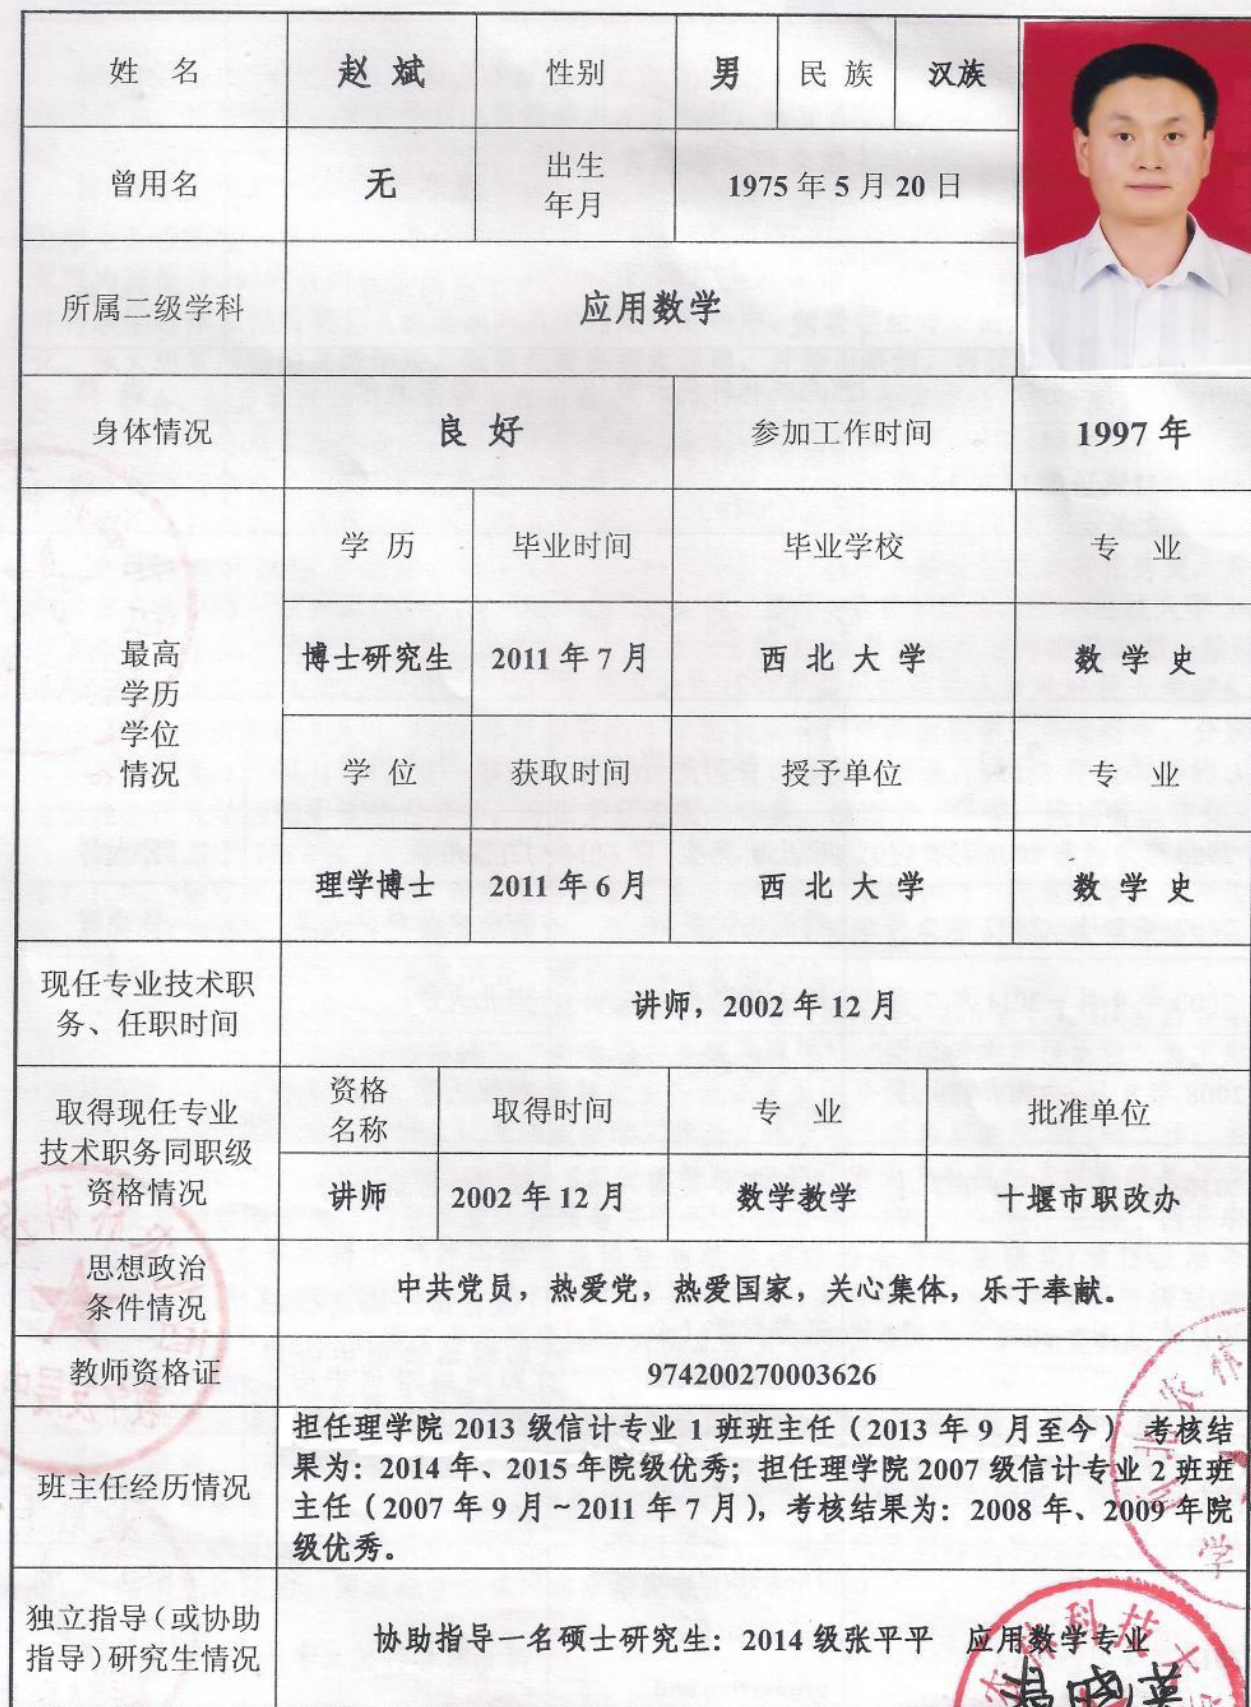 姓 名 赵 斌 性别 男 民 族 汉族
曾用名 无 出生 1975 年 5 月 20 日
年月
所属二级学科 应用数学
身体情况 良 好 参加工作时间 1997 年
学 历 毕业时间 毕业学校 专 业
最高 博士研究生 2011 年 7 月 西 北 大 学 数 学 史
学历
学位
情况
学 位 获取时间 授予单位 专 业
理学博士 2011 年 6 月 西 北 大 学 数 学 史
现任专业技术职
务、任职时间
讲师，2002 年 12 月
取得现任专业
技术职务同职级
资格情况
资格
名称
取得时间 专 业 批准单位
讲师 2002 年 12 月 数学教学 十堰市职改办
思想政治
条件情况
中共党员，热爱党，热爱国家，关心集体，乐于奉献。
教师资格证 974200270003626
班主任经历情况
担任理学院 2013 级信计专业 1 班班主任（2013 年 9 月至今） 考核结
果为：2014 年、2015 年院级优秀；担任理学院 2007 级信计专业 2 班班
主任（2007 年 9 月～2011 年 7 月），考核结果为：2008 年、2009 年院
级优秀。
独立指导（或协助
指导）研究生情况
协助指导一名硕士研究生：2014 级张平平 应用数学专业
农林科技大